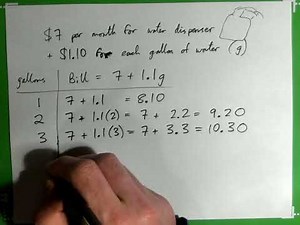 $7 per month for water dispenser
+ $1.10 for each gallon of water (g)
gallons Bill = 7 + 1.1g
1 7 + 1.1 = 8.10
2 7 + 1.1(2) = 7 + 2.2 = 9.20
3 7 + 1.1(3) = 7 + 3.3 = 10.30